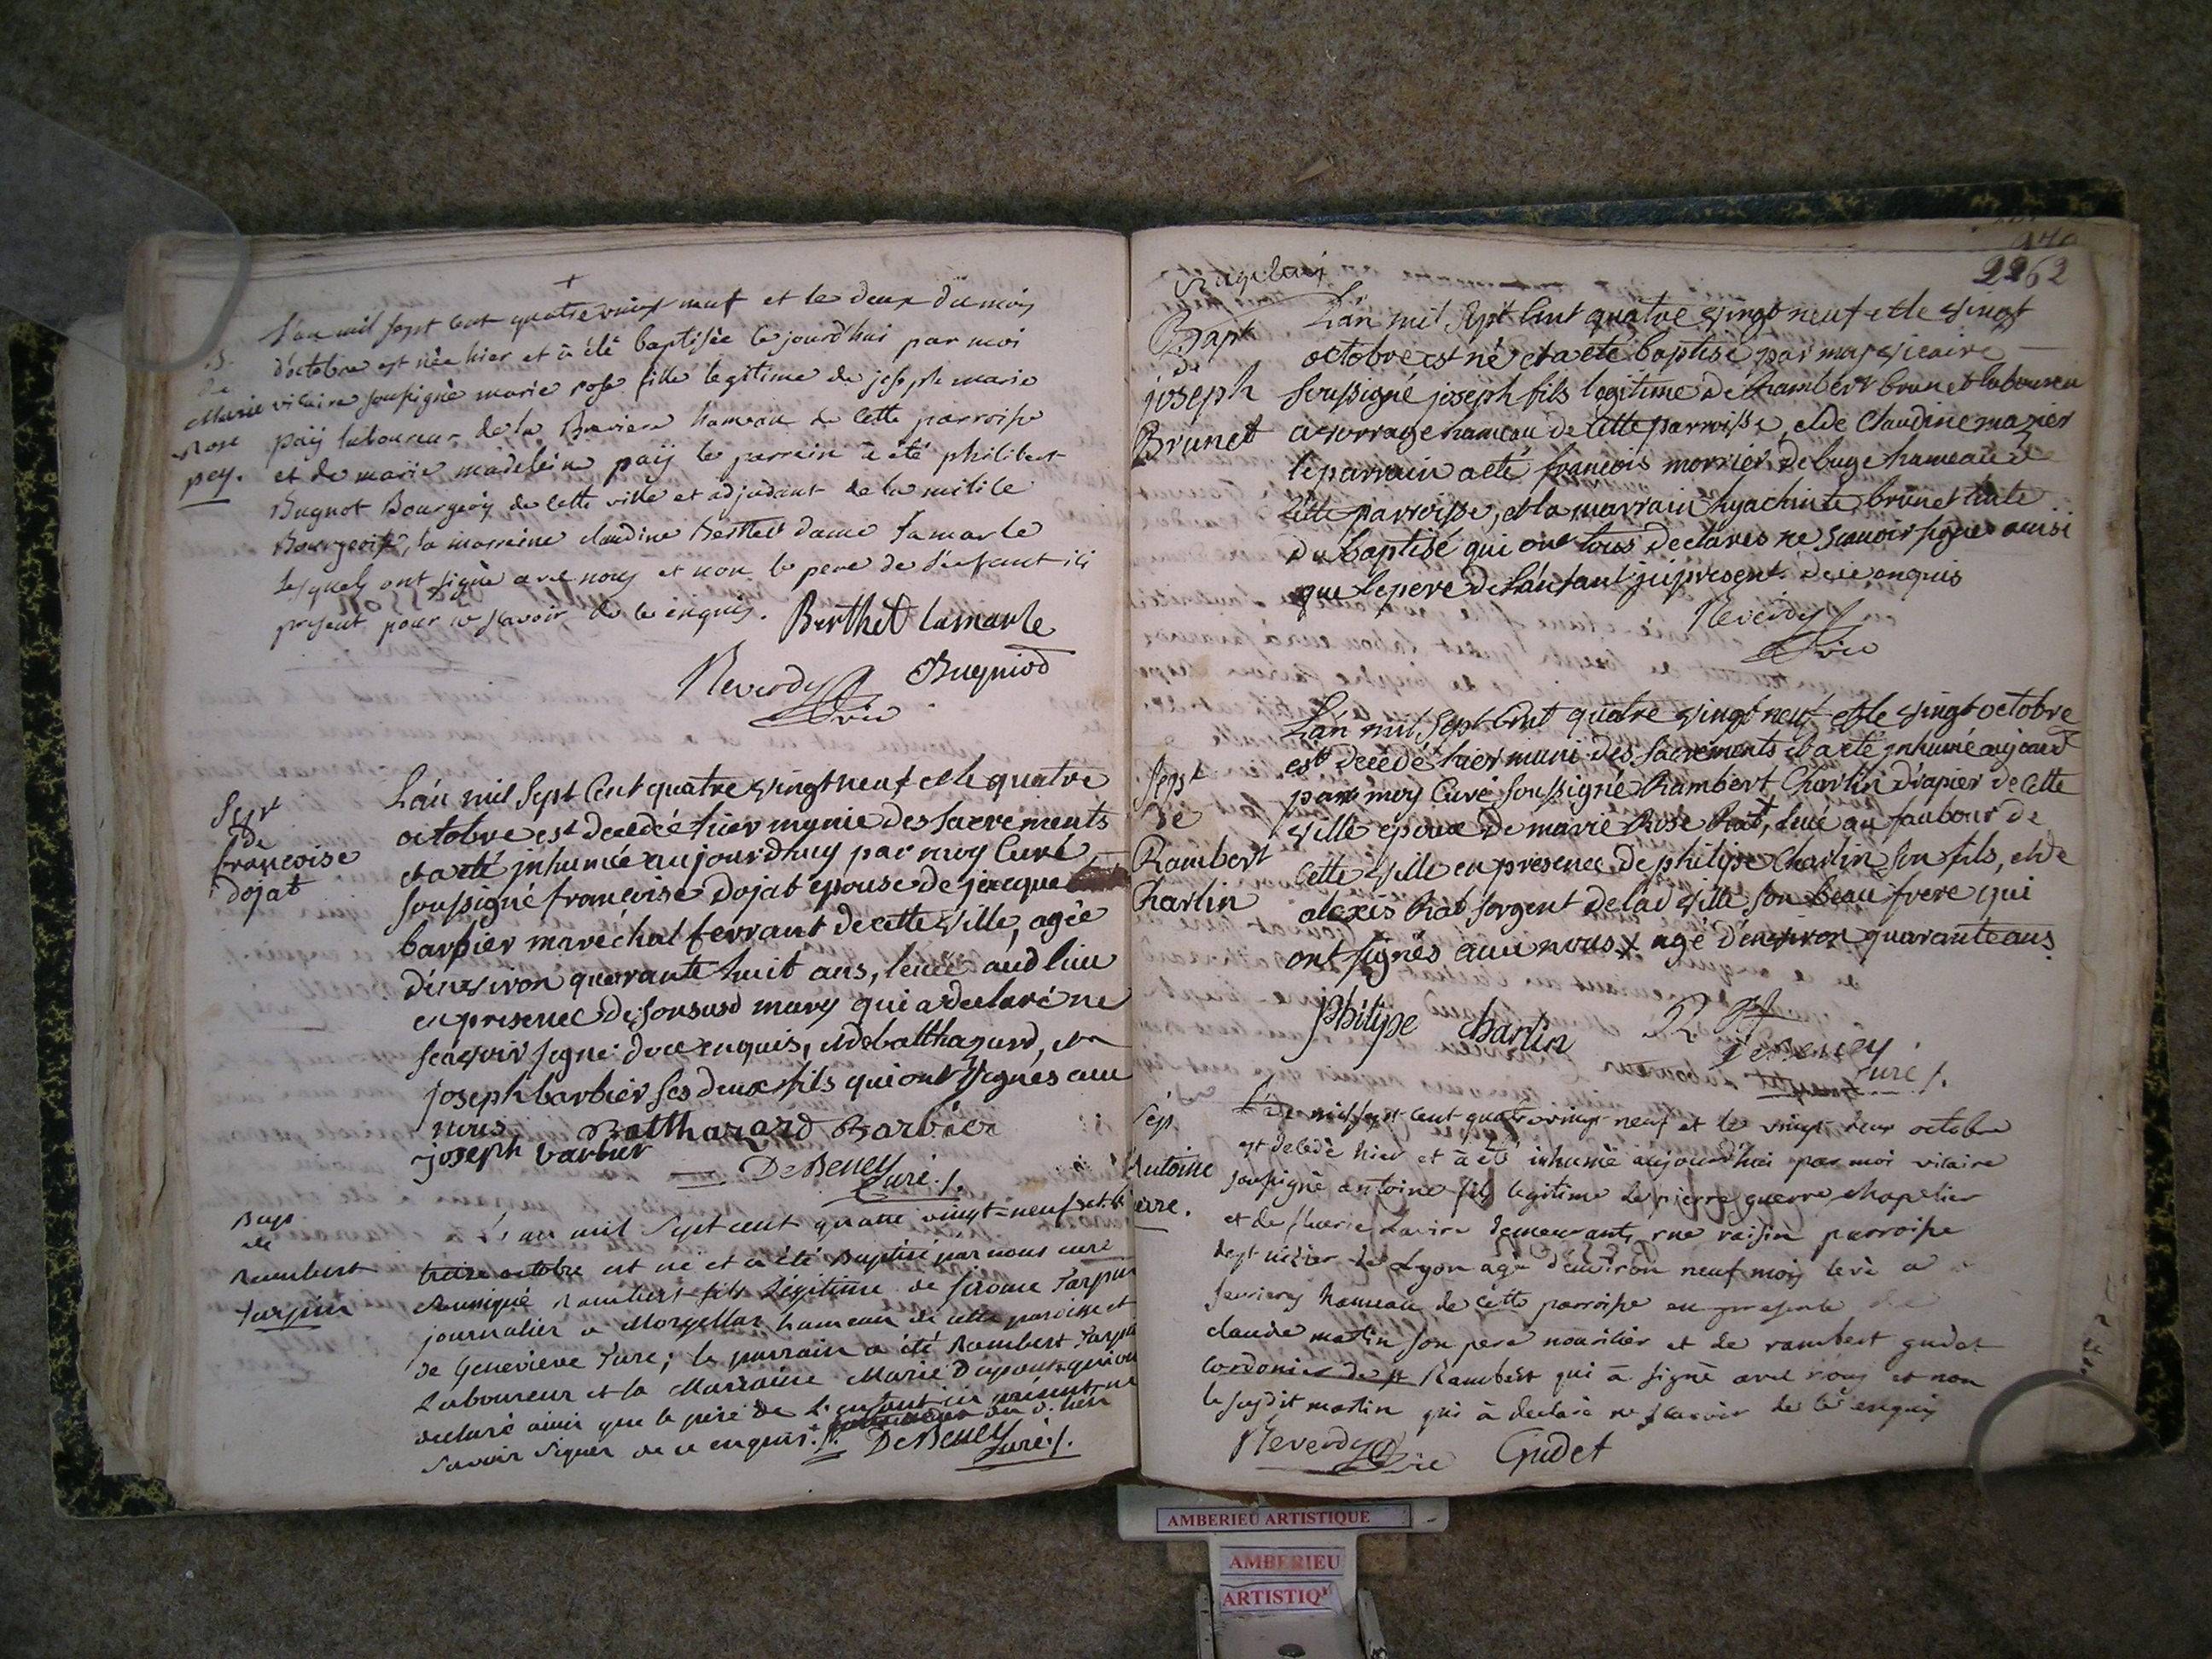 +
L'an mil sept cent quatre vingt neuf et le deux du mois
d'octobre est née hier et à été baptisée le jourd'hui par moi
vicaire soussigné marie rose fille legitime de joseph marie
B.
de
Marie
Rose
pey.
paÿ laboureur de la hameau de cette parroisse
et de marie madeleine paÿ le parrein à été philibert
Bugnot Bourgeois de cette ville et adjudant de la milice
Bourgeoise, la marreine claudine Berthet dame Lamarle
Lesquels ont signé avec nous et non le pere de l'enfant ici
present pour ne scavoir de ce enquis. Berthet Lamarle
Reverdy vic Bugniod
Sept
de
francoise
dojat
L'an mil Sept Cent quatre vingt neuf et le quatre
octobre est decedée hier munie des Sacrements
et a été jnhumée aujourdhuy par moy Curé
Soussigné francoise dojat epouse de jacque
barbier maréchal ferrant de cette ville, agée
d'environ quarante huit ans, levée aud lieu
en presence de son susd mary qui a declaré ne
scavoir signe de ce enquis, et de balthazard, et
joseph barbier ses deux fils qui ont signés avec
nous Balthazard Barbier
joseph barbier
DeBeney
Curé ./.
Bap
de
Rambert
Tarpin
L'an mil Sept cent quatre vingt-neuf et le
treize octobre est né et a été Baptisé par nous curé
soussigné Rambert fils Légitime de jirome Tarpin
journalier a Morgellas hameau de cette paroisse et
de Genevieve Ture; le parrain a été Rambert Tarpin
Laboureur et la Marraine Marie qui ont
declaré ainsi que le pere de L'enfant ici présent ne
Savoir Signer de ce enquis ./. DeBeney
Curé ./.
2262
Bapt
de
joseph
Brunet
L'an mil Sept Cent quatre vingt neuf et le vingt
octobre est né et a été baptisé par moy vicaire
soussigné joseph fils legitime de Rambert brunet laboureu
a vorrage hameau de Cette parroisse, et de Claudine mazier
le parrain a été francois morrier de buge hameau de
Cette parroisse, et la marrain hyachinte brunet tante
du baptisé qui ont tous declarés ne scavoir signer ainsi
que le pere de L'enfant jci present. de ce enquis
Reverdy
vic
Sept
de
Rambert
Charlin
L'an mil Sept Cent quatre vingt neuf et le vingt octobre
est decedé hier muni des Sacrements et a été jnhumé aujourd
par moy Curé soussigné Rambert Charlin drapier de Cette
ville epoux de marie Rose Rat, levé au faubour de
Cette ville en presence de philipe Charlin son fils, et de
alexis Rat sergent de lad ville son beau frere qui
ont signés avec nous x agé d'environ quarante ans.
Philipe Charlin Rat
DeBeney
Curé ./.
Sep
Antoine
L'an mil sept cent quatre vingt neuf et le vingt deux octobre
est decedé hier et à été inhumé aujourd'hui par moi vicaire
soussigné antoine fils legitime de pierre guerre chapelier
et de demeurants rue raisin parroisse
de st nizier de Lyon agé d'environ neuf mois levé a
hameau de cette parroisse en presence de
claude martin son pere nourricier et de rambert gudet
Cordonier de st Rambert qui à signé avec nous et non
le susdit martin qui à declaré ne scavoir de ce enquis
Reverdy vic Gudet
AMBERIEU ARTISTIQUE
AMBERIEU
ARTISTIQU